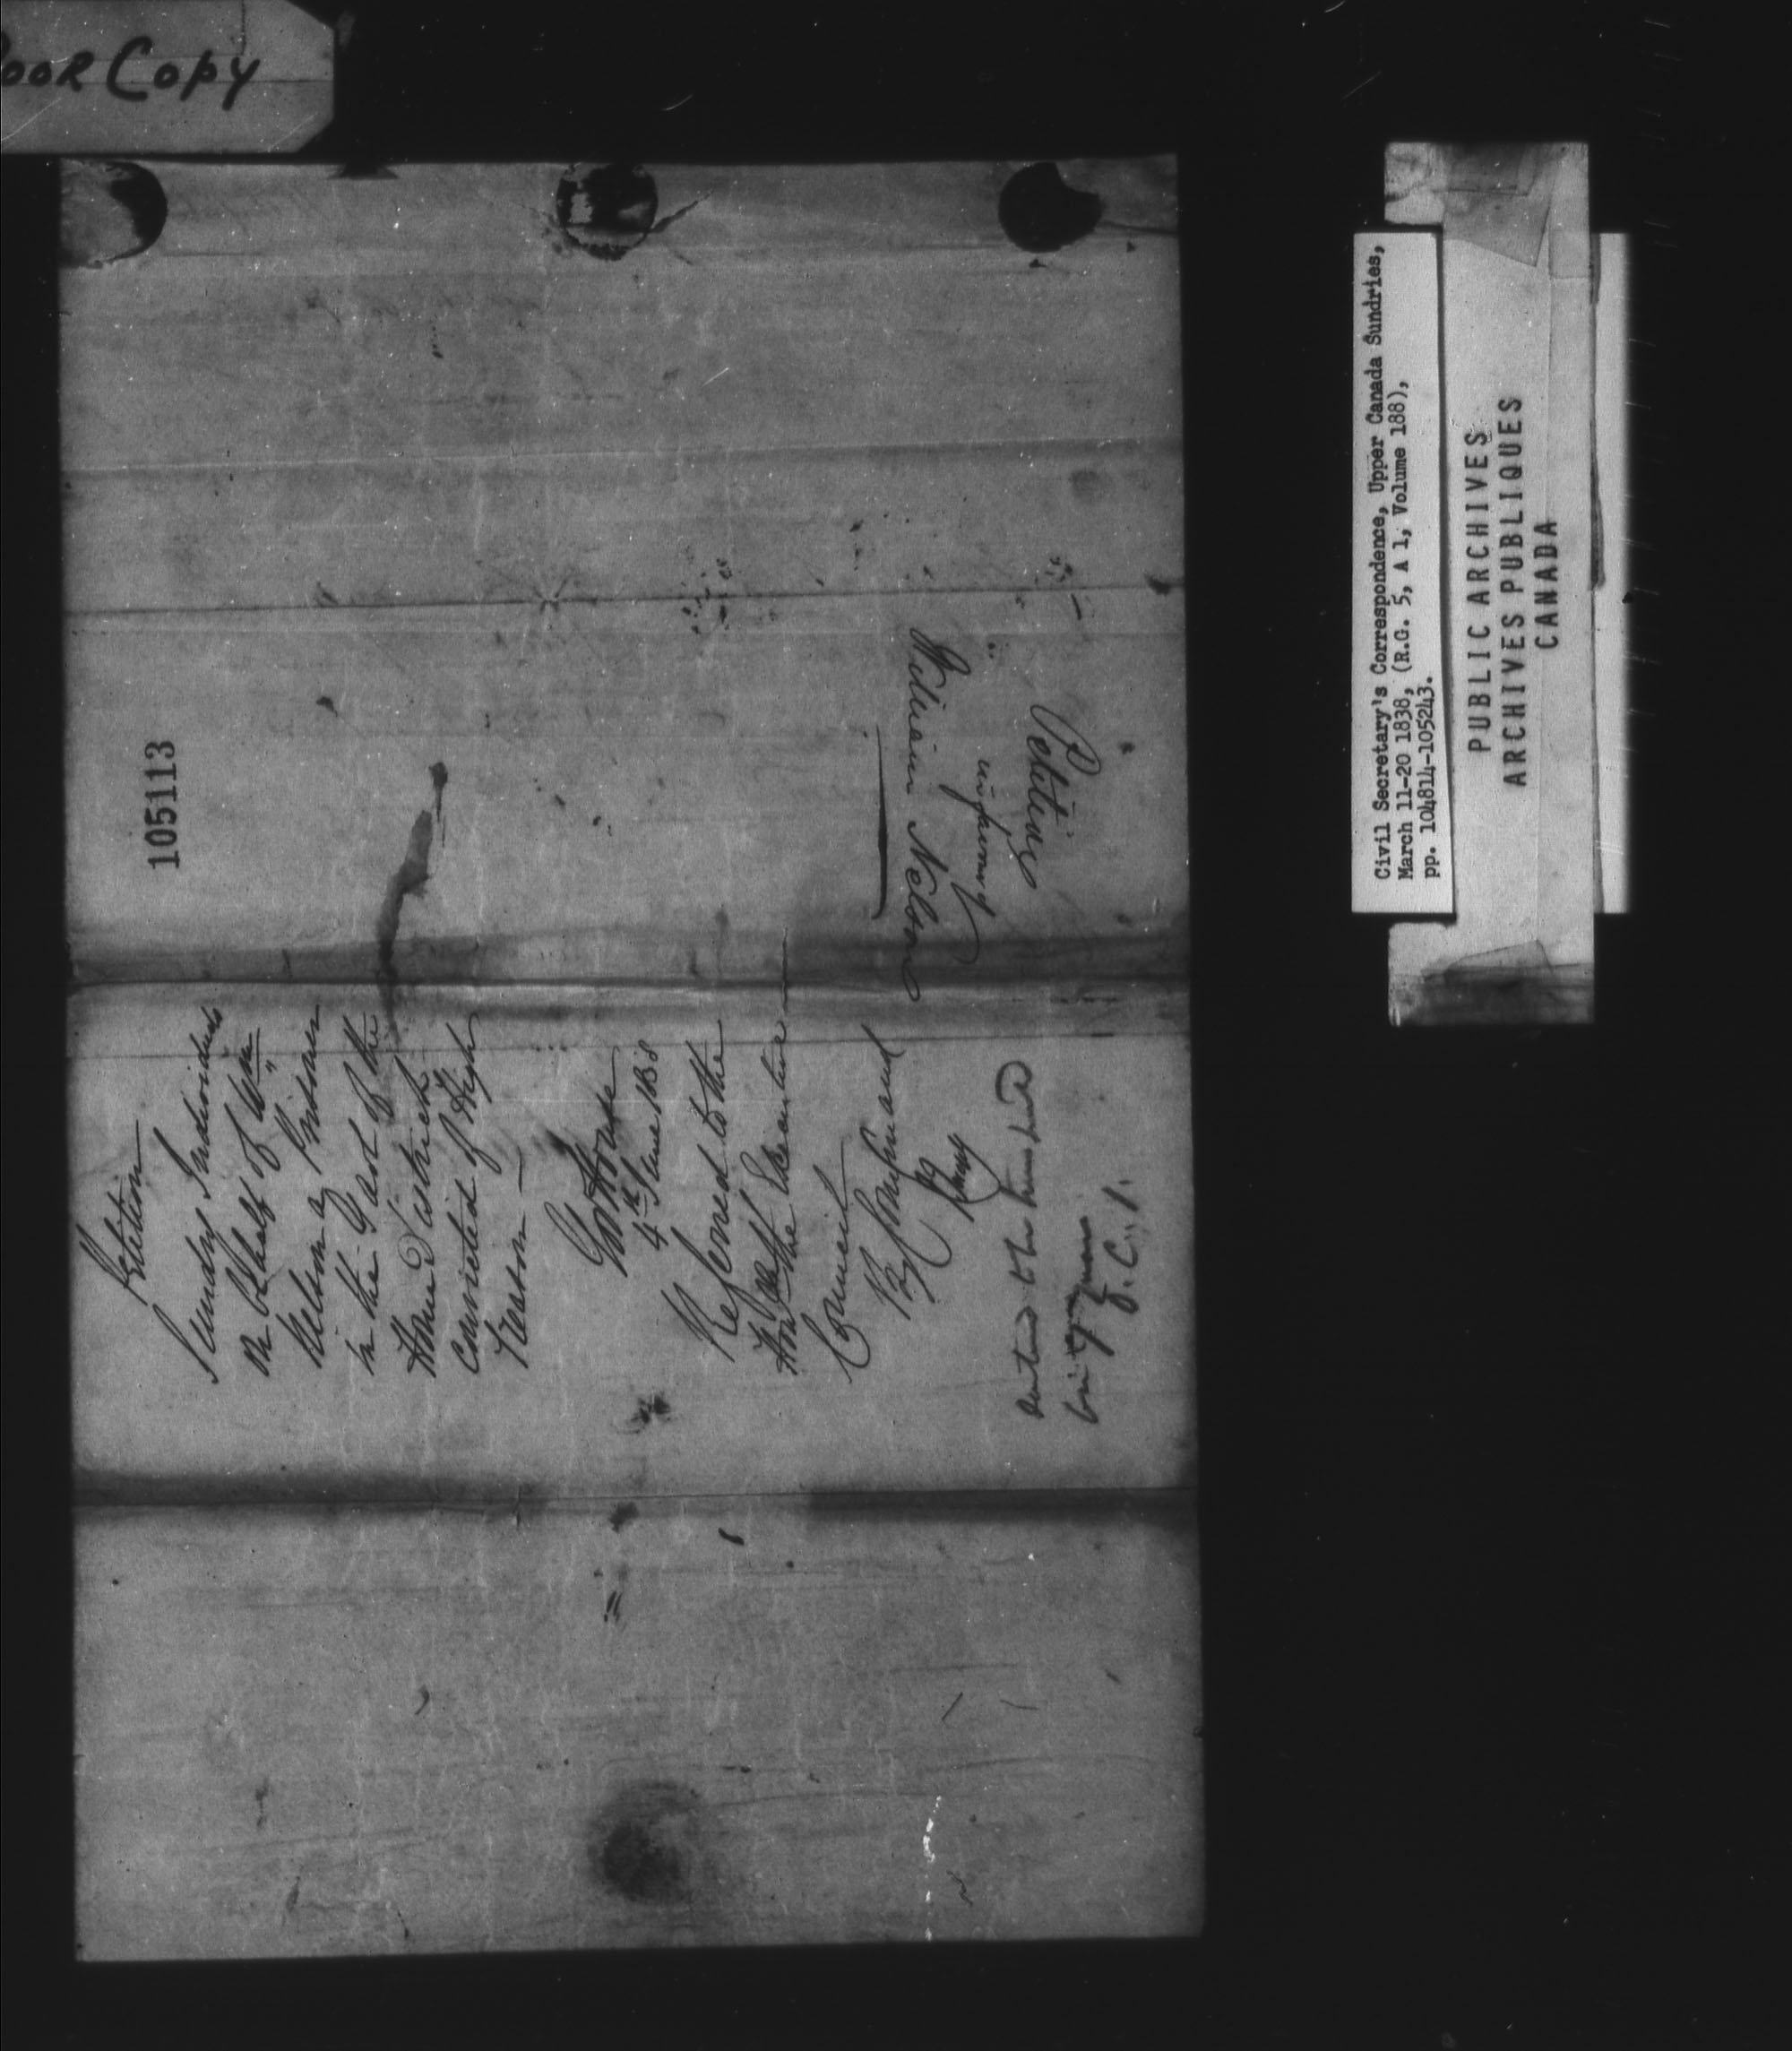 Poor Copy
105113
Petition
Sundry Individuals
on behalf of Wm
Nelson a Prisoner
in the Gaol of the
Home District
convicted of High
Treason —
Govt House
4th June 1838
Referred to the
Honble the Executive
Council
By Command
Petitions
William Nelson
J.C.
Civil Secretary's Correspondence, Upper Canada Sundries,
March 11-20 1838, (R.G. 5, A 1, Volume 188),
pp. 104814-105243.
PUBLIC ARCHIVES
ARCHIVES PUBLIQUES
CANADA